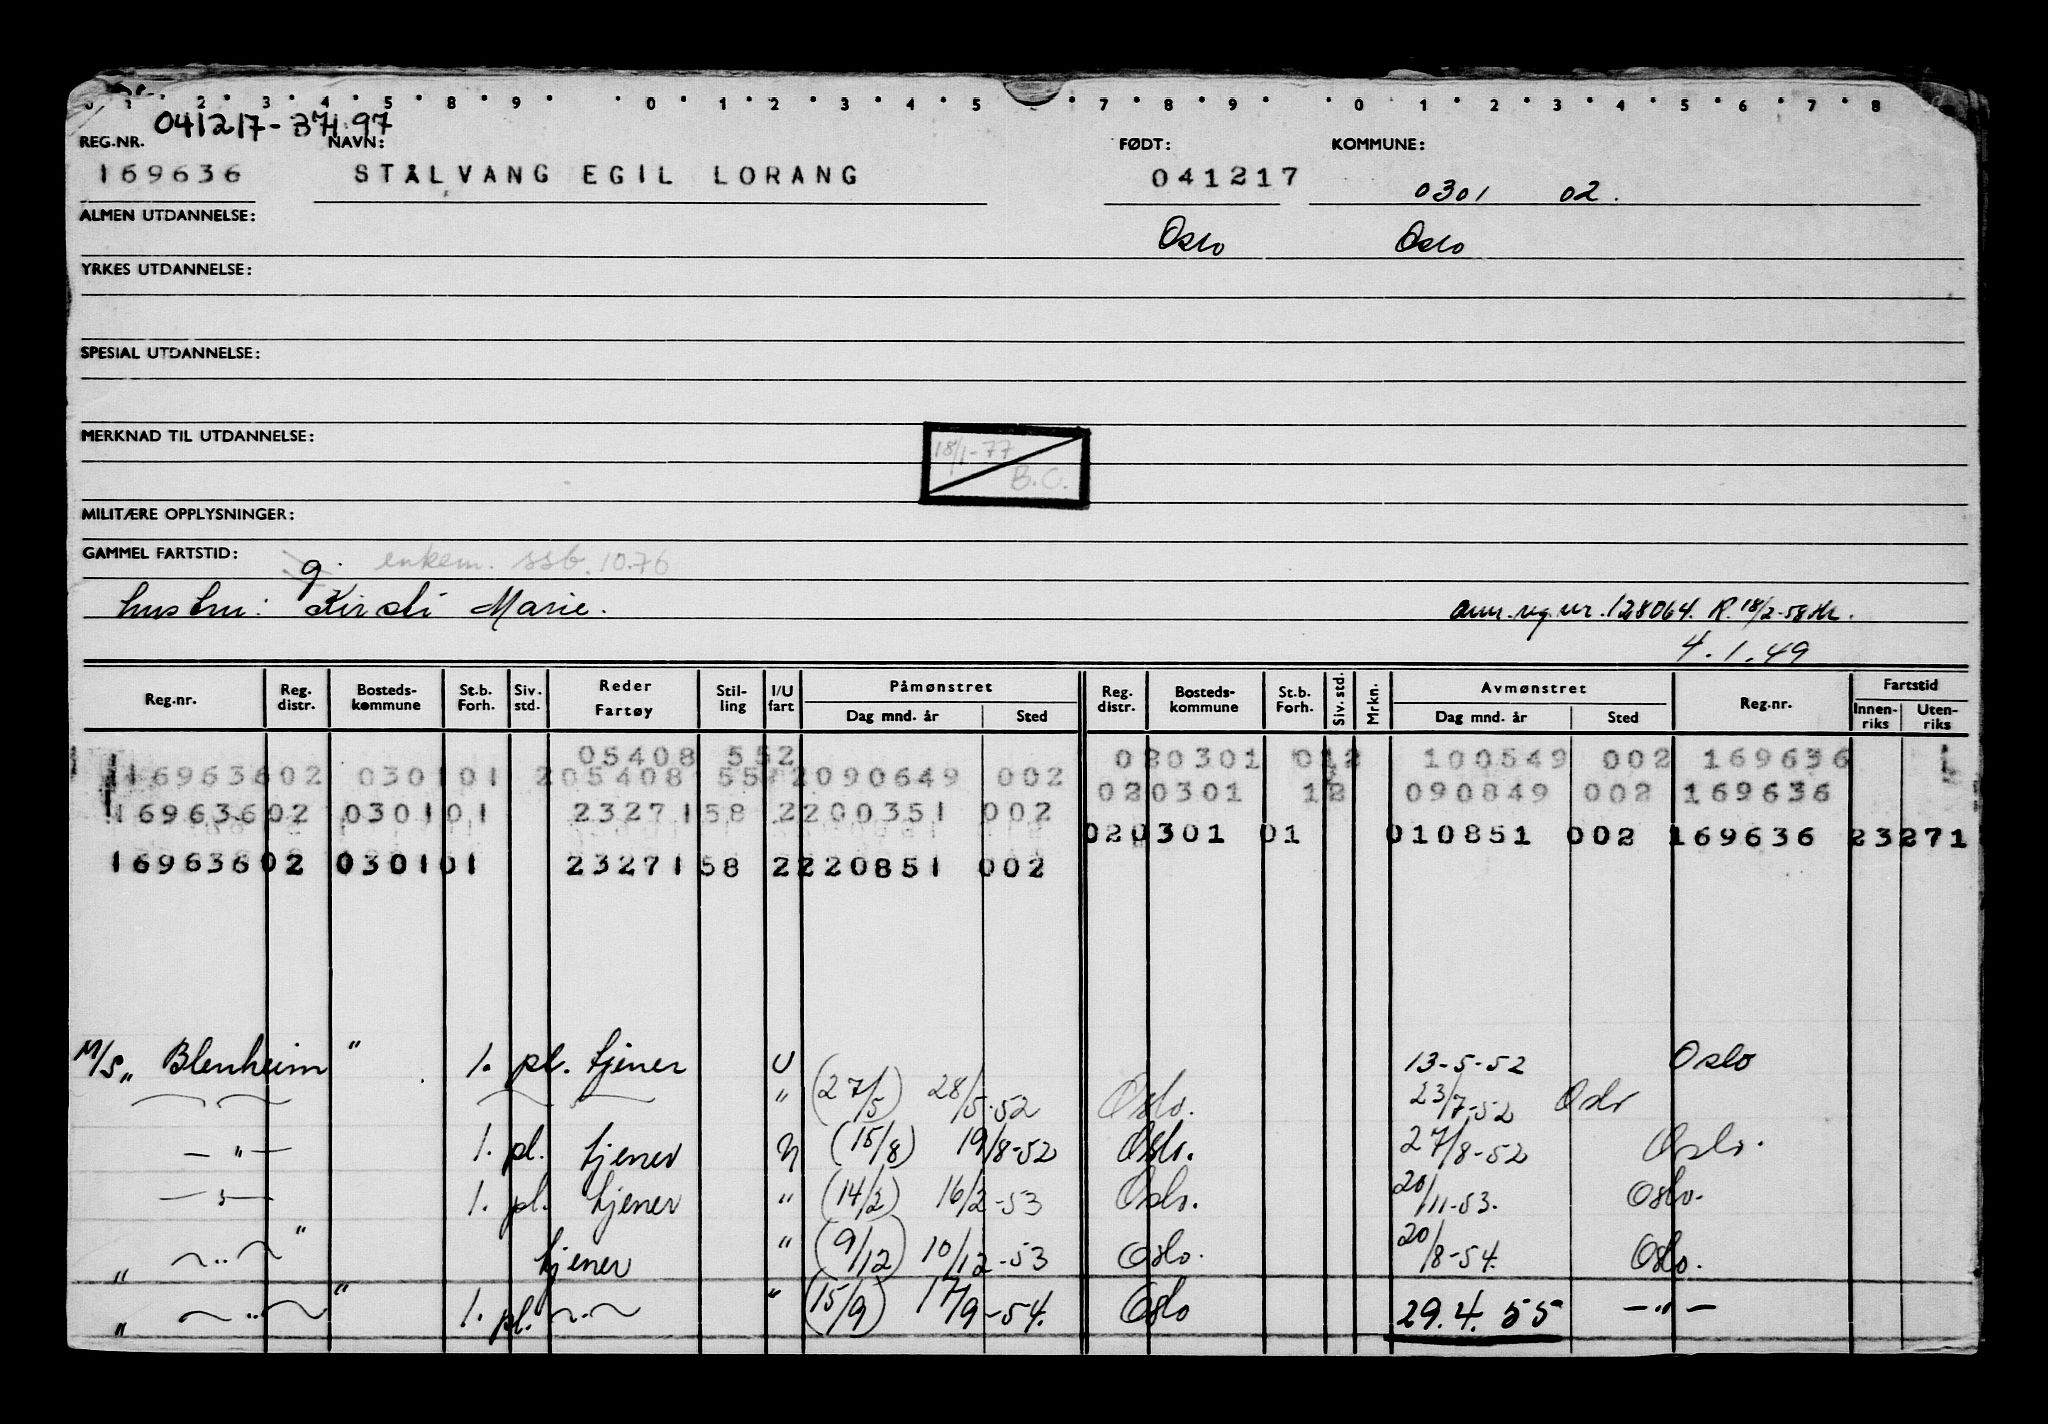 041217-37197
REG.NR. NAVN: FØDT: KOMMUNE:
169636 STÅLVANG EGIL LORANG 041217 0301 02.
ALMEN UTDANNELSE: Oslo Oslo
YRKES UTDANNELSE:
SPESIAL UTDANNELSE:
MERKNAD TIL UTDANNELSE:
18/1-77
B.C.
MILITÆRE OPPLYSNINGER:
GAMMEL FARTSTID: g. enkem. ssb. 10.76
hustru: Kirsti Marie. ann. reg. nr. 128064. R. 18/2-58
4.1.49
Reg.nr. Reg. distr. Bosteds-kommune St.b. Forh. Siv. std. Reder Fartøy Stil-ling I/U fart Påmønstret Dag mnd. år Sted Reg. distr. Bosteds-kommune St.b. Forh. Siv. std. Mrkn. Avmønstret Dag mnd. år Sted Reg.nr. Fartstid Innen-riks Uten-riks
05408 552 020301 012 100549 002 169636
169636 02 0301 01 2 05408 55 2 090649 002 020301 12 090849 002 169636
169636 02 0301 01 23271 58 2 200351 002 020301 01 010851 002 169636 23271
169636 02 0301 01 23271 58 2 220851 002
M/S „ Blenheim " 1. pl. tjener U 13-5-52 Oslo
" (27/5) 28/5-52 Oslo. 23/7-52 Oslo
— " — 1. pl. tjener (15/8) 19/8-52 Oslo. 27/8-52 Oslo.
— " — 1. pl. tjener " (14/2) 16/2-53 Oslo. 20/11-53. Oslo.
„ — " — " tjener " (9/12) 10/12-53 Oslo. 20/8-54. Oslo.
„ — " — " 1. pl. — " — " (15/9) 17/9-54. Oslo 29.4.55 — " —